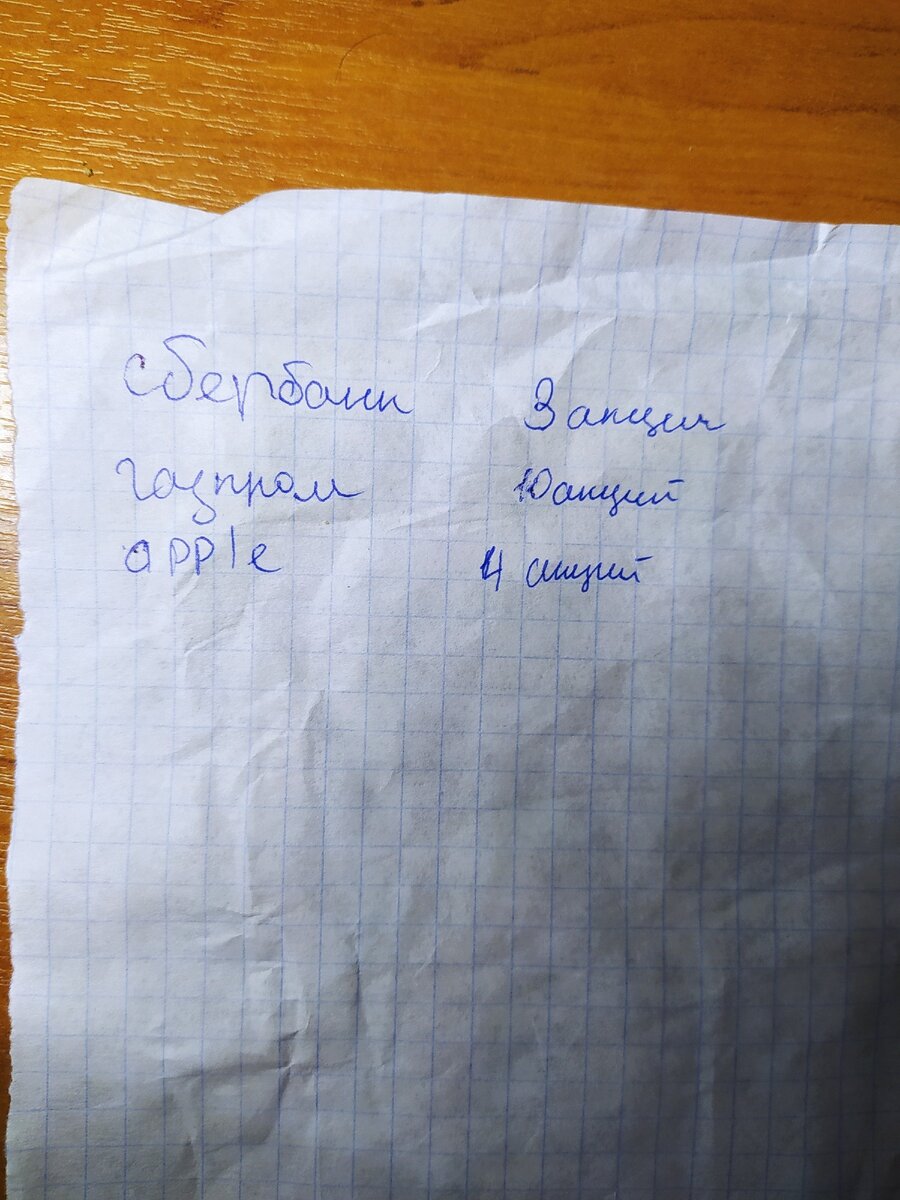 сбербанк 3 акции
газпром 10 акций
apple 4 акций